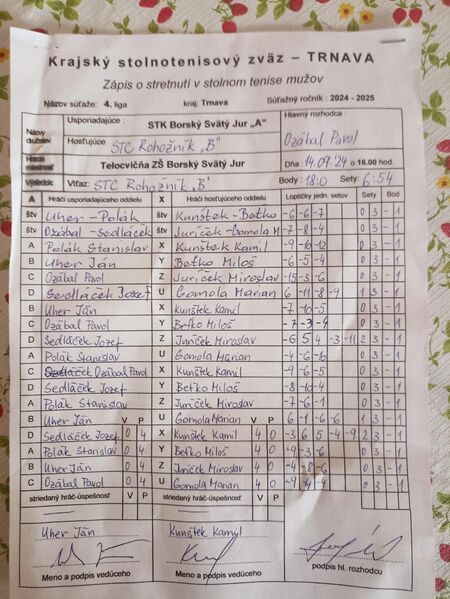 Krajský stolnotenisový zväz – TRNAVA
Zápis o stretnutí v stolnom tenise mužov
Názov súťaže: 4. liga kraj: Trnava Súťažný ročník : 2024 - 2025
Názvy družstiev Usporiadajúce : STK Borský Svätý Jur „A“ Hlavný rozhodca :
Hosťujúce STC Rohožník „B“ Ozábal Pavol
Telocvičňa ZŠ Borský Svätý Jur Dňa 14.09.24 o 16.00 hod.
Výsledok Víťaz: STC Rohožník „B“ Body : 18:0 Sety : 6:54
A Hráči usporiadajúceho oddielu X Hráči hosťujúceho oddielu Loptičky jedn. setov Sety Bod
štv Uher – Polák štv Kunštek - Beťko -6 -6 -7 0 3 - 1
štv Ozábal – Sedláček štv Juríček - Gomola M -7 -8 -4 0 3 - 1
A Polák Stanislav X Kunštek Kamil -9 -10 -12 0 3 - 1
B Uher Ján Y Beťko Miloš -6 -5 -4 0 3 - 1
C Ozábal Pavol Z Juríček Miroslav -15 -3 -6 0 3 - 1
D Sedláček Jozef U Gomola Marian 6 -11 -8 -9 1 3 - 1
B Uher Ján X Kunštek Kamil -7 -10 -5 0 3 - 1
C Ozábal Pavol Y Beťko Miloš -7 -3 -4 0 3 - 1
D Sedláček Jozef Z Juríček Miroslav -6 5 4 -3 -11 2 3 - 1
A Polák Stanislav U Gomola Marian -4 -6 -6 0 3 - 1
C Ozábal Pavol X Kunštek Kamil -9 -6 -5 0 3 - 1
D Sedláček Jozef Y Beťko Miloš -8 -10 -4 0 3 - 1
A Polák Stanislav Z Juríček Miroslav -7 -6 -1 0 3 - 1
B Uher Ján V P U Gomola Marian V P 6 -1 -6 -6 1 3 - 1
D Sedláček Jozef 0 4 X Kunštek Kamil 4 0 -3 6 5 -4 -9 2 3 - 1
A Polák Stanislav 0 4 Y Beťko Miloš 4 0 -9 -3 -6 0 3 - 1
B Uher Ján 0 4 Z Juríček Miroslav 4 0 -4 -8 -6 0 3 - 1
C Ozábal Pavol 0 4 U Gomola Marian 4 0 -9 -4 -4 0 3 - 1
striedaný hráč-úspešnosť V P striedaný hráč-úspešnosť V P
Uher Ján Kunštek Kamil
Meno a podpis vedúceho Meno a podpis vedúceho podpis hl. rozhodcu